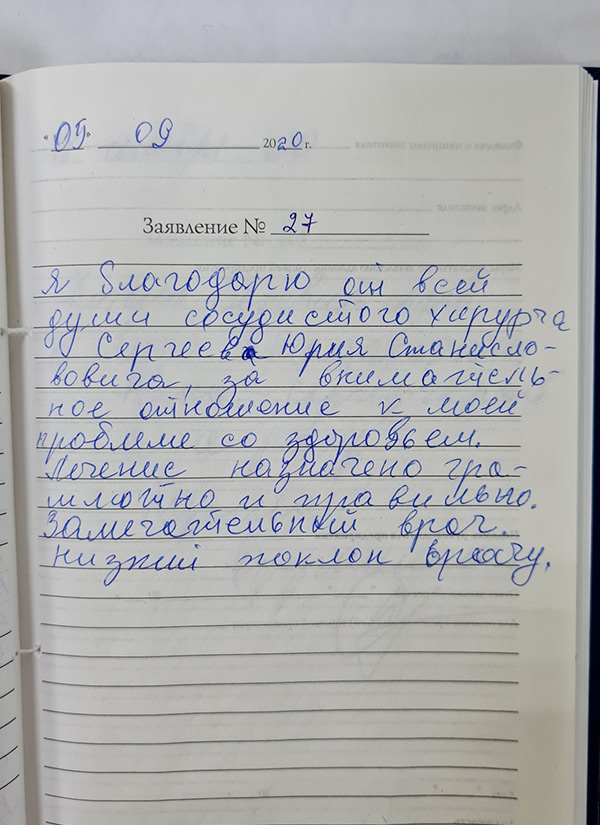 "09" 09 2020 г.
Заявление № 27
Я благодарю от всей
души сосудистого хирурга
Сергеева Юрия Станисло-
вовича, за вниматель-
ное отношение к моей
проблеме со здоровьем.
Лечение назначено гра-
млотно и правильно.
Замечательный врач.
Низкий поклон врачу.